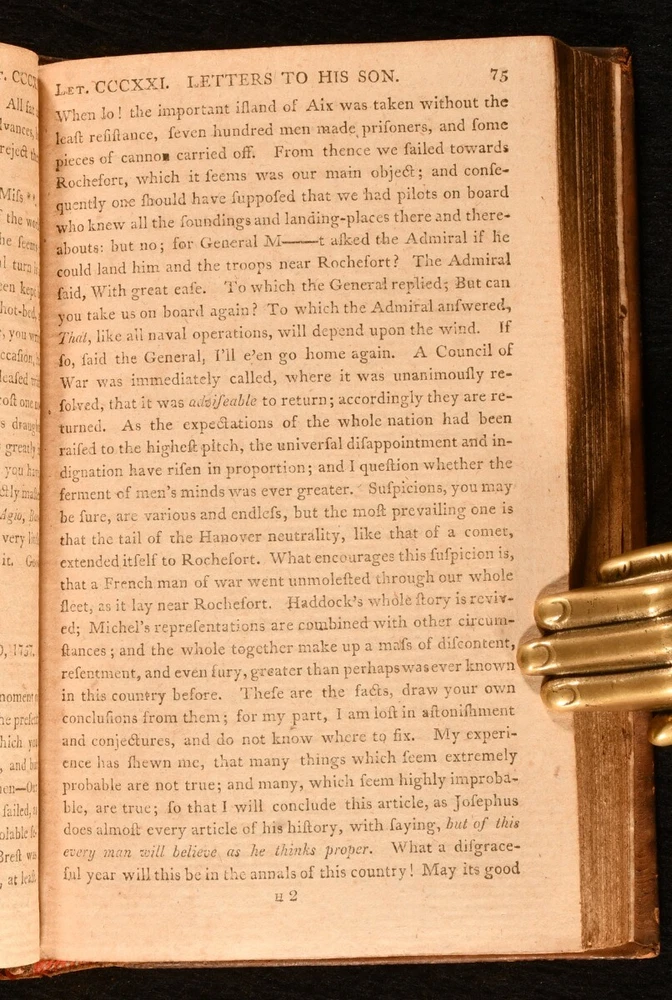 LET. CCCXXI. LETTERS TO HIS SON. 75
When lo! the important iſland of Aix was taken without the
leaſt reſiſtance, ſeven hundred men made priſoners, and ſome
pieces of cannon carried off. From thence we ſailed towards
Rochefort, which it ſeems was our main object; and conſe-
quently one ſhould have ſuppoſed that we had pilots on board
who knew all the ſoundings and landing-places there and there-
abouts: but no; for General M——t aſked the Admiral if he
could land him and the troops near Rochefort? The Admiral
ſaid, With great eaſe. To which the General replied; But can
you take us on board again? To which the Admiral anſwered,
That, like all naval operations, will depend upon the wind. If
ſo, ſaid the General, I'll e'en go home again. A Council of
War was immediately called, where it was unanimouſly re-
ſolved, that it was adviſeable to return; accordingly they are re-
turned. As the expectations of the whole nation had been
raiſed to the higheſt pitch, the univerſal diſappointment and in-
dignation have riſen in proportion; and I queſtion whether the
ferment of men's minds was ever greater. Suſpicions, you may
be ſure, are various and endleſs, but the moſt prevailing one is
that the tail of the Hanover neutrality, like that of a comet,
extended itſelf to Rochefort. What encourages this ſuſpicion is,
that a French man of war went unmoleſted through our whole
fleet, as it lay near Rochefort. Haddock's whole ſtory is reviv-
ed; Michel's repreſentations are combined with other circum-
ſtances; and the whole together make up a maſs of diſcontent,
reſentment, and even fury, greater than perhaps was ever known
in this country before. Theſe are the facts, draw your own
concluſions from them; for my part, I am loſt in aſtoniſhment
and conjectures, and do not know where to fix. My experi-
ence has ſhewn me, that many things which ſeem extremely
probable are not true; and many, which ſeem highly improba-
ble, are true; ſo that I will conclude this article, as Joſephus
does almoſt every article of his hiſtory, with ſaying, but of this
every man will believe as he thinks proper. What a diſgrace-
ful year will this be in the annals of this country! May its good
H 2